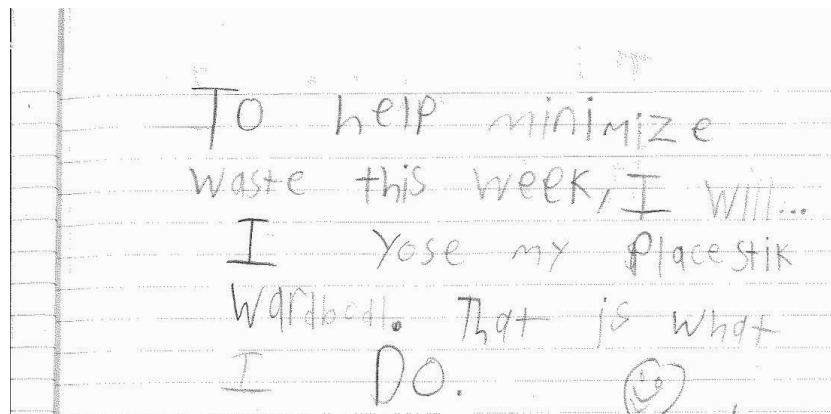 To help minimize
waste this week, I will...
I yose my Placestik
wardbodl. That is what
I DO.